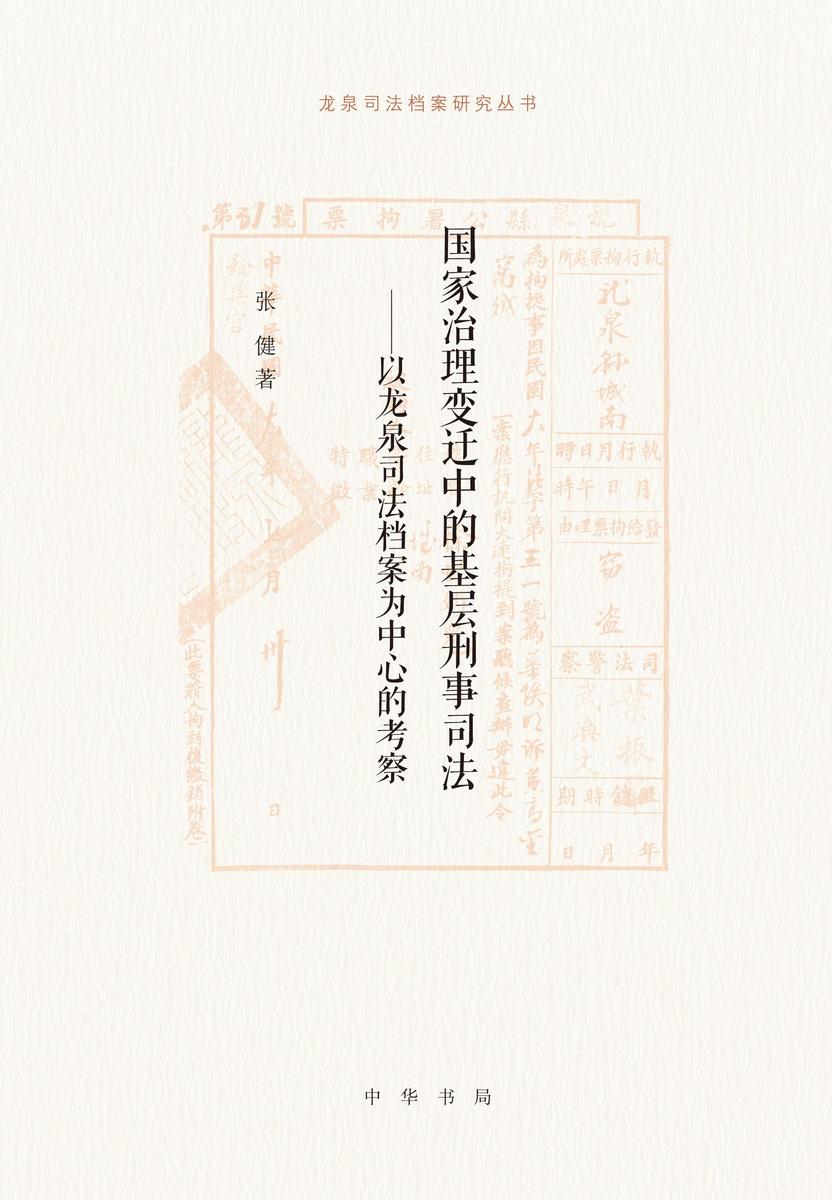 龙泉司法档案研究丛书
国家治理变迁中的基层刑事司法
——以龙泉司法档案为中心的考察
张健著
第31號
龍泉縣公署拘票
執行拘票處所
龙泉县城南
執行月日時
月日午時
發給拘票理由
窃盗
司法警察
葉振
繳銷時期
年月日
為拘提事因民國
年
字第三一號為
一案應行訊問大速拘提到案聽候查辦毋違此令
住址
職業
特徵
中華民國
年七月卅日
發票官
(此票將人拘到後繳銷附卷)
中华书局